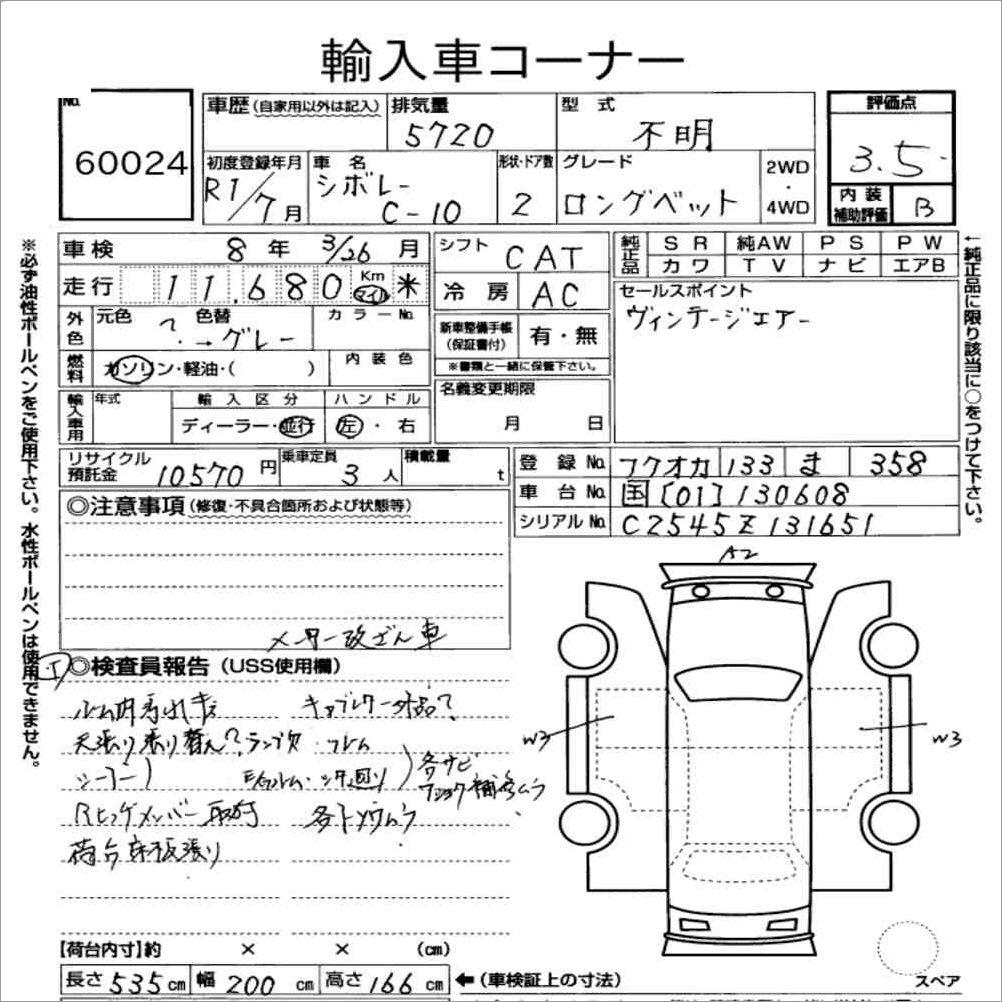 輸入車コーナー
No.
60024
車歴(自家用以外は記入)
排気量
5720
型 式
不明
評価点
3.5
初度登録年月
R1/7月
車 名
シボレー
C-10
形状・ドア数
2
グレード
ロングベット
2WD
・
4WD
内装
補助評価
B
※必ず油性ボールペンをご使用下さい。水性ボールペンは使用できません。
←純正品に限り該当に○をつけて下さい。
車検 8年 3/26月
走行 11.680 Km マイル *
外色
元色 ?
色替 →グレー
カラーNo.
燃料
ガソリン・軽油・( )
内装色
輸入車用
年式
輸入区分
ディーラー・並行
ハンドル
左・右
シフト CAT
冷房 AC
新車整備手帳
(保証書付)
有・無
※書類と一緒に保管下さい。
名義変更期限
月 日
純正品
SR 純AW PS PW
カワ TV ナビ エアB
セールスポイント
ヴィンテージエアー
リサイクル
預託金
10570円
乗車定員
3人
積載量
t
登録No. フクオカ 133 ま 358
車台No. 国[01]130608
シリアルNo. C2545Z131651
◎注意事項(修復・不具合箇所および状態等)
メーター改ざん車
◎検査員報告(USS使用欄)
天張り張り替え?ランプ欠・フレム
キャブレター社外品?
各サビ
荷台床板張り
A2
W3
W3
【荷台内寸】約 × × (cm)
長さ535cm 幅200cm 高さ166cm ←(車検証上の寸法)
スペア